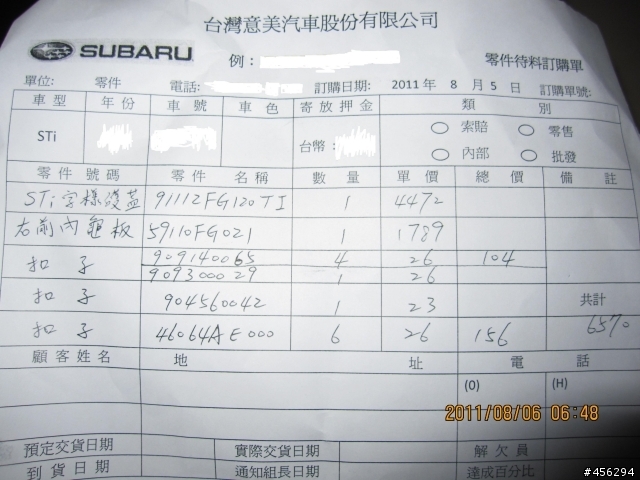 台灣意美汽車股份有限公司
SUBARU
例：
零件待料訂購單
單位: 零件 電話: 訂購日期: 2011 年 8 月 5 日 訂購單號:
車型 年份 車號 車色 寄放押金 類 別
STi 台幣: 索賠 零售
內部 批發
零件號碼 零件名稱 數量 單價 總價 備註
STi字樣護蓋 91112FG120TI 1 4472
右前內龜板 59110FG021 1 1789
扣子 909140065 4 26 104
909300029 1 26
扣子 904560042 1 23 共計
扣子 46064AE000 6 26 156 6570
顧客姓名 地 址 電 話
(O) (H)
2011/08/06 06:48
預定交貨日期 實際交貨日期 解欠員
到貨日期 通知組長日期 達成百分比
#456294